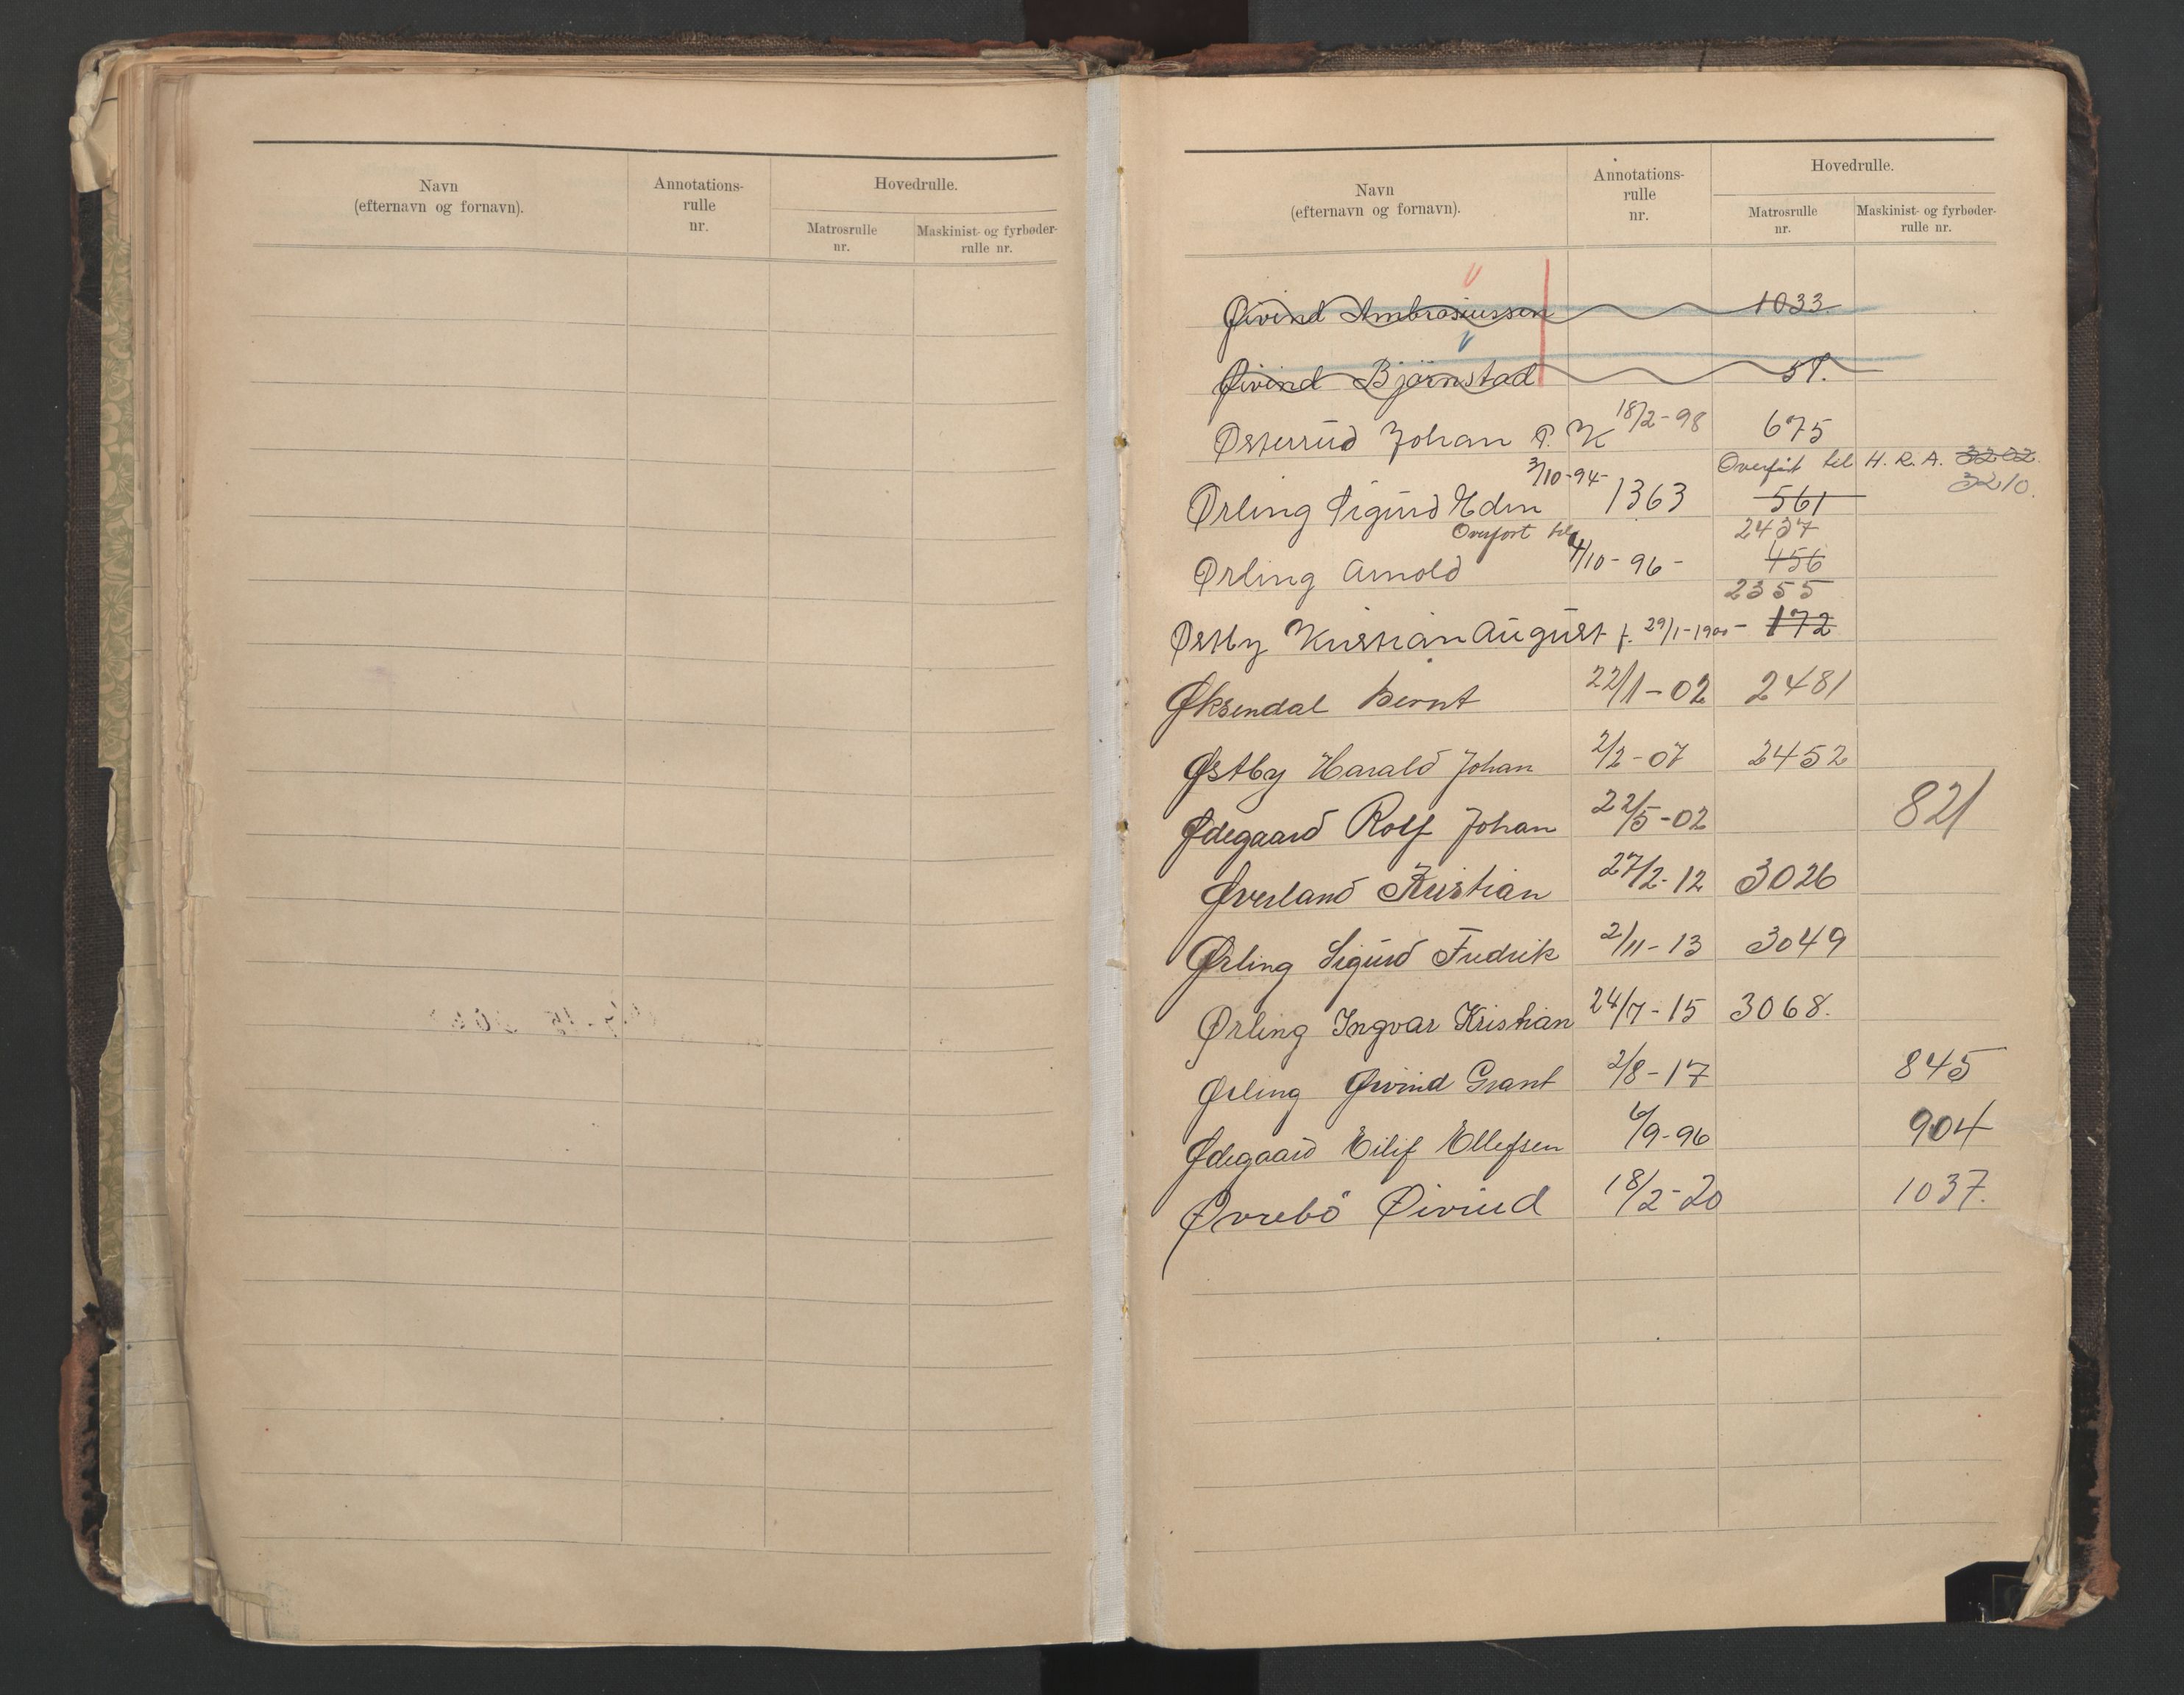 Navn
(efternavn og fornavn).
Annotations-
rulle
nr.
Hovedrulle.
Matrosrulle
nr.
Maskinist- og fyrbøder-
rulle nr.
Navn
(efternavn og fornavn).
Annotations-
rulle
nr.
Hovedrulle.
Matrosrulle
nr.
Maskinist- og fyrbøder-
rulle nr.
Øivind Ambrosiussen 1033.
Øivind Bjørnstad
Østerrud Johan P. K 18/2-98 675
3/10-94- Overført til H. R. A. 3202.
3210.
Ørling Sigurd Edin 1363 561
Overført til 2437
Ørling Arnold 4/10-96- 456
2355
Østby Kristian August f. 29/1-1900- 172
Øksendal Bernt 22/1-02 2481
Østby Harald Johan 2/2-07 2452
Ødegaard Rolf Johan 22/5-02 821
Øverland Kristian 27/2-12 3026
Ørling Sigurd Fredrik 2/11-13 3049
Ørling Ingvar Kristian 24/7-15 3068.
Ørling Øivind Grant 2/8-17 845
Ødegaard Eilif Ellefsen 6/9-96 904
Øvrebö Øivind 18/2-20 1037.